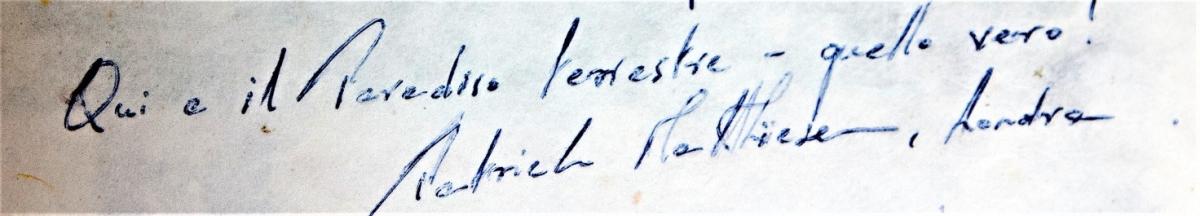 Qui e il Paradiso terrestre - quello vero!
Patrick Matthiesen, Londra